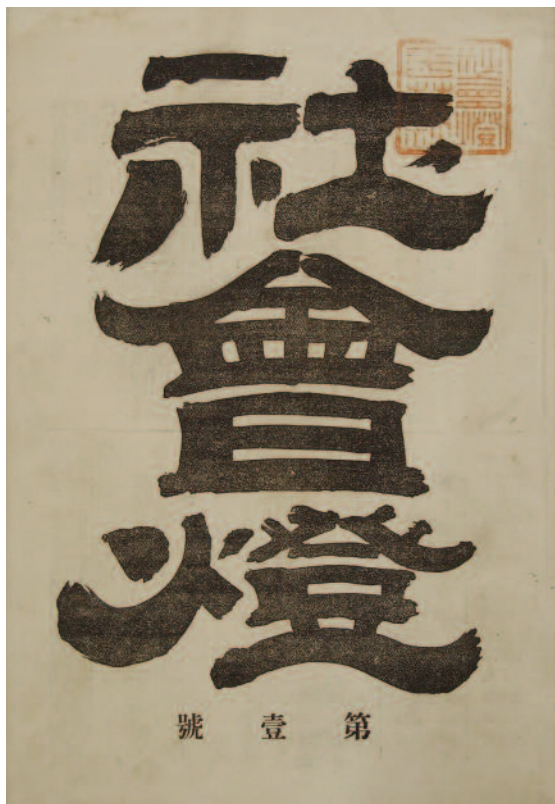 社會燈
第壹號